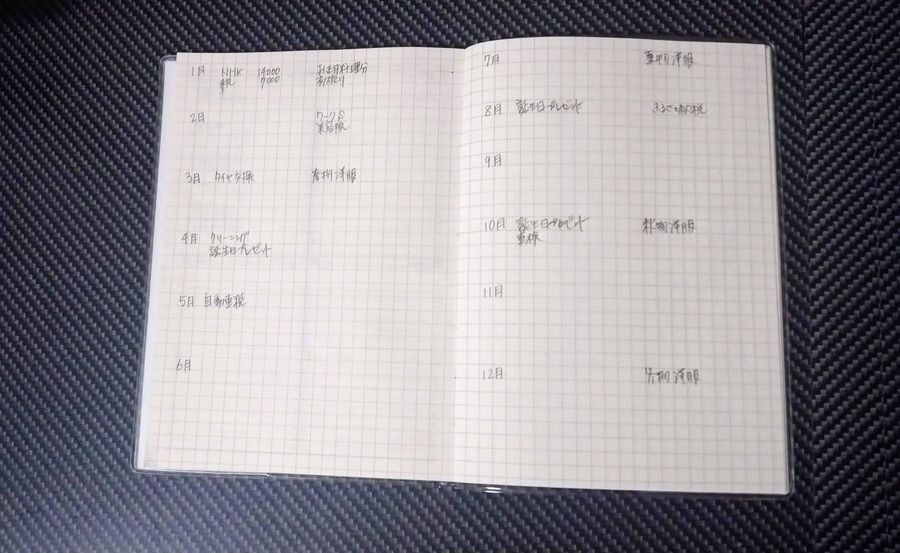 1月 NHK 14000 お正月料理分
税 7000 初売り
2月
美容院
3月 タイヤ交換 春物 洋服
4月 クリーニング
誕生日プレゼント
5月 自動車税
6月
7月 夏物 洋服
8月 誕生日プレゼント ふるさと納税
9月
10月 誕生日プレゼント 秋物 洋服
車検
11月
12月 冬物 洋服